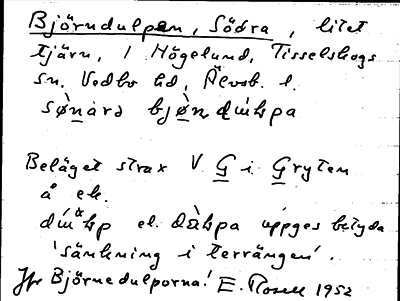 Björndulpen, Södra, litet
tjärn, i Högelund, Tisselskogs
sn. Vedbo hd, Älvsb. l.
sø̀nárə bjø̀n dúlpa
Beläget strax V. G i Gryten
å ek.
dúlp el. dùlpa uppges betyda
'sänkning i terrängen'.
Jfr Björnedulporna! E. Rosell 1952